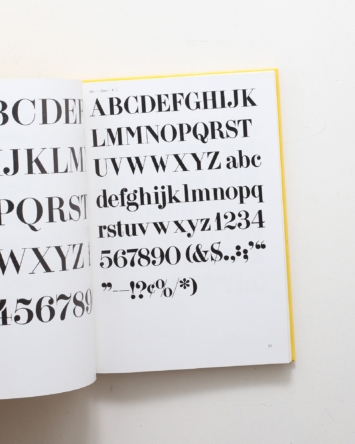 BCDEF
IJKLM
PQRST
WXYZ
456789
ABCDEFGHIJK
LMMNOPQRST
UVWWXYZ abc
defghijklmnopq
rstuvwxyz1234
567890(&$.,:;’‘“
”-—!?¢%/*)